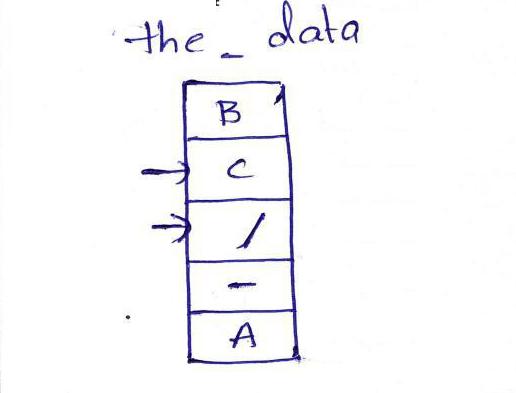 the_data
B
C
/
-
A